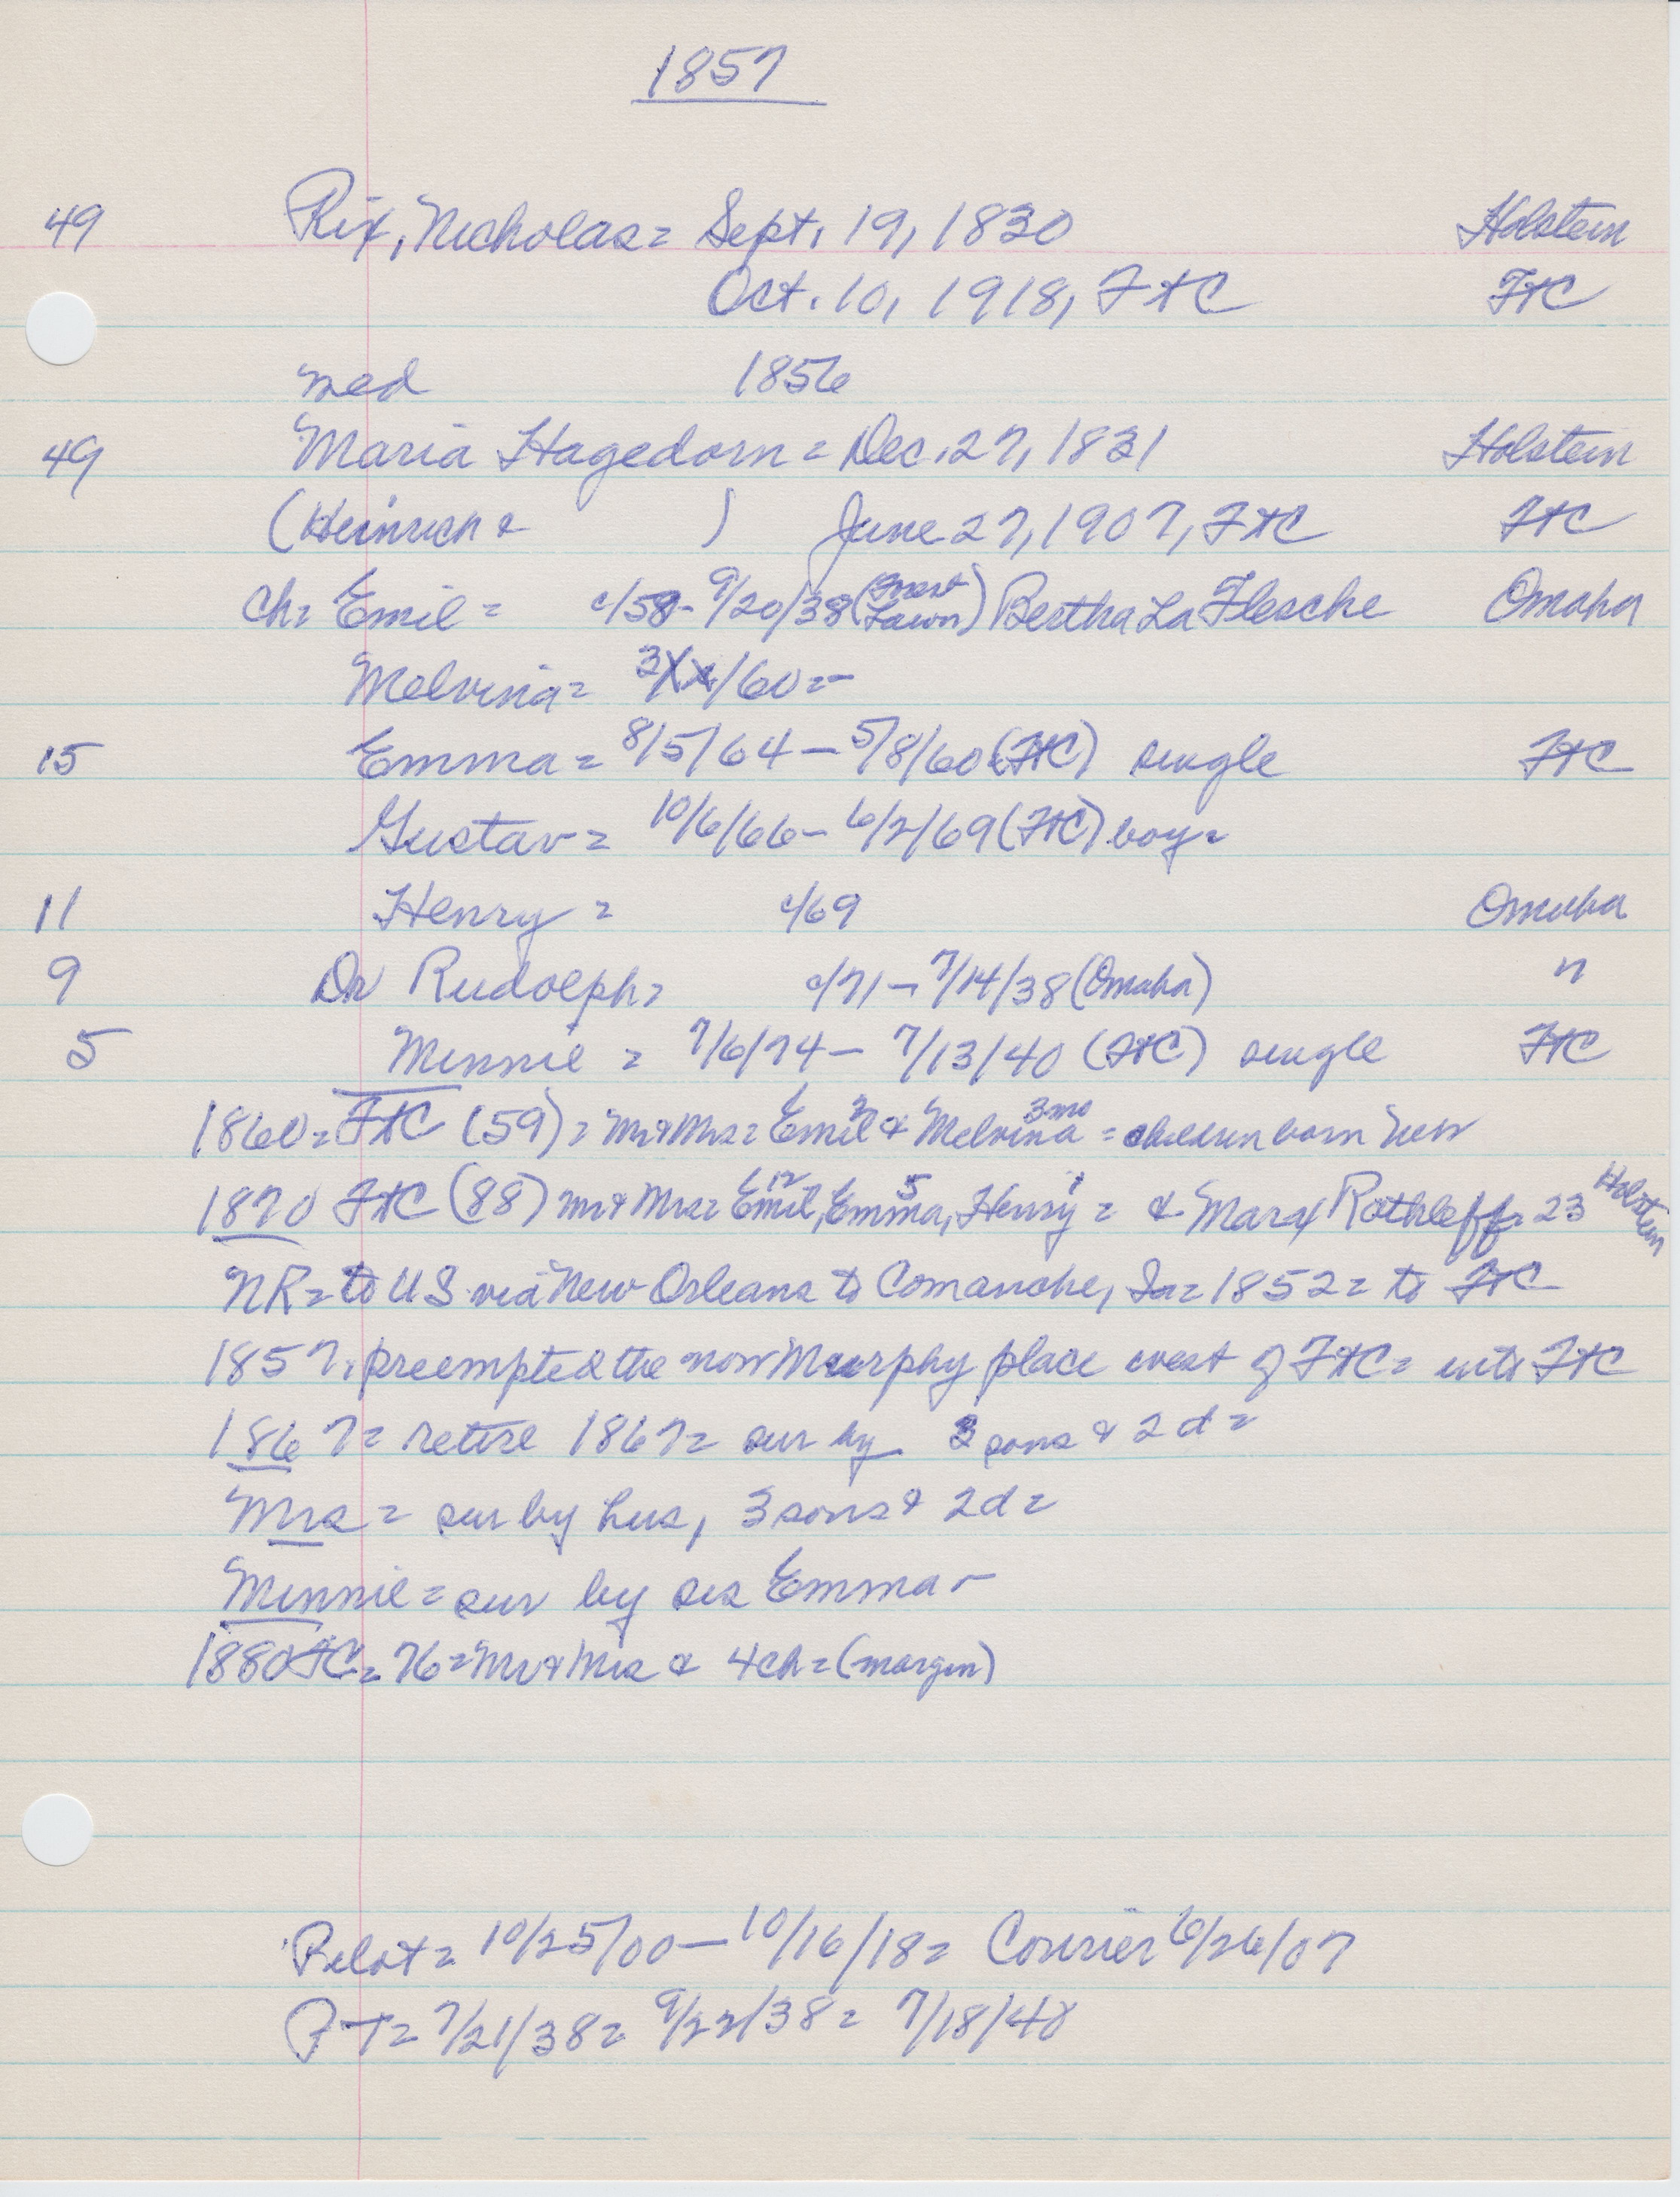 1857
49 Rix, Nicholas = Sept. 19, 1830 Holstein
Oct. 10, 1918, FtC FtC
med 1856
49 Maria Hagedorn = Dec. 27, 1831 Holstein
(Heinrich & ) June 27, 1907, FtC FtC
Ch= Emil = c/58- 9/20/38 (Forest Lawn) Bertha La Flesche Omaha
Melvina = /60=-
15 Emma = 8/5/64 - 5/8/60 (FtC) single FtC
Gustav = 10/6/66 - 6/2/69 (FtC) boy=
11 Henry = c/69 Omaha
9 Dr Rudolph = c/71 - 7/14/38 (Omaha) "
5 Minnie = 7/6/74 - 7/13/40 (FtC) single FtC
1860 = FtC (59) = Mr & Mrs = Emil 2 & Melvina 3mo = children born Neb
1870 FtC (88) Mr & Mrs = Emil 12, Emma 5, Henry 1 = & Marx Rathleff = 23 Holstein
NR = to US via New Orleans to Comanche, Ia = 1852 = to FtC
1857, preempted the now Murphy place west of FtC = into FtC
1867 = retire 1867 = sur by 3 sons & 2 d =
Mrs = sur by hus, 3 sons & 2d =
Minnie = sur by sis Emma -
1880 FC = 76 = Mr & Mrs & 4 ch = (margin)
Pilot = 10/25/00 - 10/16/18 = Courier 6/26/07
PT = 7/21/38 = 9/22/38 = 7/18/40